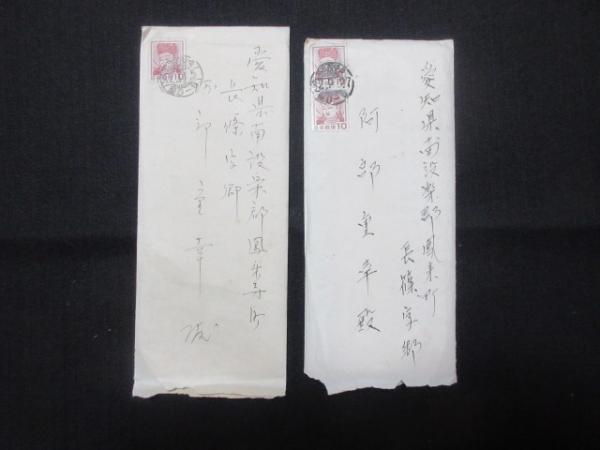 愛知県南設楽郡鳳来寺町
長篠字郷
阿部重幸殿
愛知県南設楽郡鳳来町
長篠字郷
阿部重幸殿
10